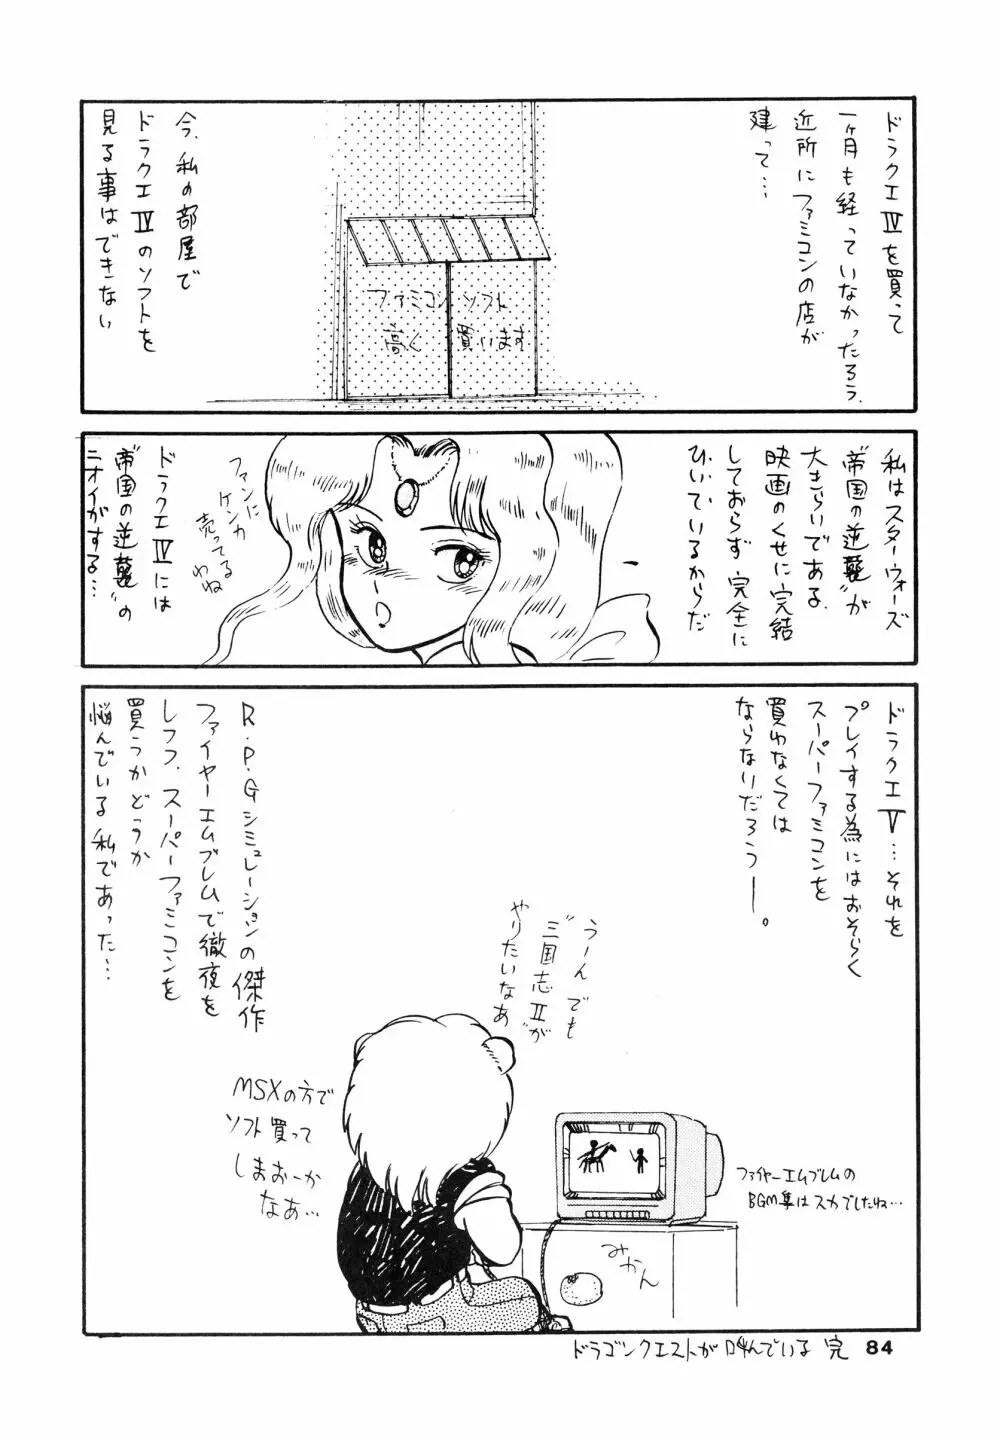 ドラクエⅣを買って
一ヶ月も経っていなかったろう.
近所にファミコンの店が
建って…
ファミコンソフト
高く買います
今、私の部屋で
ドラクエⅣのソフトを
見る事はできない
私はスターウォーズ
“帝国の逆襲”が
大きらいである.
映画のくせに完結
しておらず完全に
ひいているからだ
ファンに
ケンカ
売ってる
わね
ドラクエⅣには
“帝国の逆襲”の
ニオイがする…
ドラクエⅤ…それを
プレイする為にはおそらく
スーパーファミコンを
買わなくては
ならないだろうー。
うーんでも
“三国志Ⅱが
やりたいなあ”
R.P.Gシミュレーションの傑作
ファイヤーエムブレムで徹夜を
しつつ、スーパーファミコンを
買うかどうか
悩んでいる私であった…
MSXの方で
ソフト買って
しまおーか
なあ…
ファイヤーエムブレムの
BGM集はスカでしたね…
みかん
ドラゴンクエストが叫んでいる 完 84